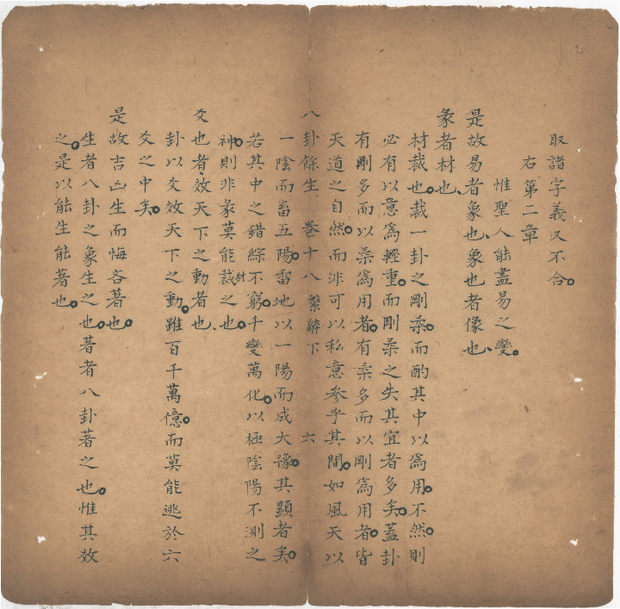 取諸字義又不合。
右第二章
惟聖人能盡易之變。
是故易者象也、象也者像也、
彖者材也、
材裁也。裁一卦之剛柔。而酌其中以為用。不然。則
必有以意為輕重。而剛柔之失其宜者多矣。蓋卦
有剛多而以柔為用者。有柔多而以剛為用者。皆
天道之自然。而非可以私意參乎其間。如風天以
八卦餘生 卷十八 繫辭下 六
一陰而畜五陽。雷地以一陽而成大豫。其顯者矣。
若其中之錯綜不窮。千變萬化。以極陰陽不測之
神。則非彖莫能裁之也。
材
爻也者效天下之動者也、
卦以爻效天下之動。雖百千萬億。而莫能逃於六
爻之中矣。
是故吉凶生而悔吝著也。
生者八卦之象生之也。著者八卦著之也。惟其效
之。是以能生能著也。